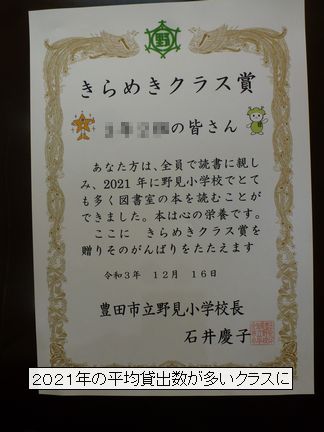 野
きらめきクラス賞
の皆さん
あなた方は、全員で読書に親し
み、2021年に野見小学校でとて
も多く図書室の本を読むことが
できました。本は心の栄養です。
ここに　きらめきクラス賞を
贈りそのがんばりをたたえます
令和3年　12月　16日
豊田市立野見小学校長
石井慶子
２０２１年の平均貸出数が多いクラスに